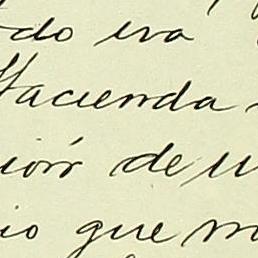 do era
Hacienda
ión de u
io que m